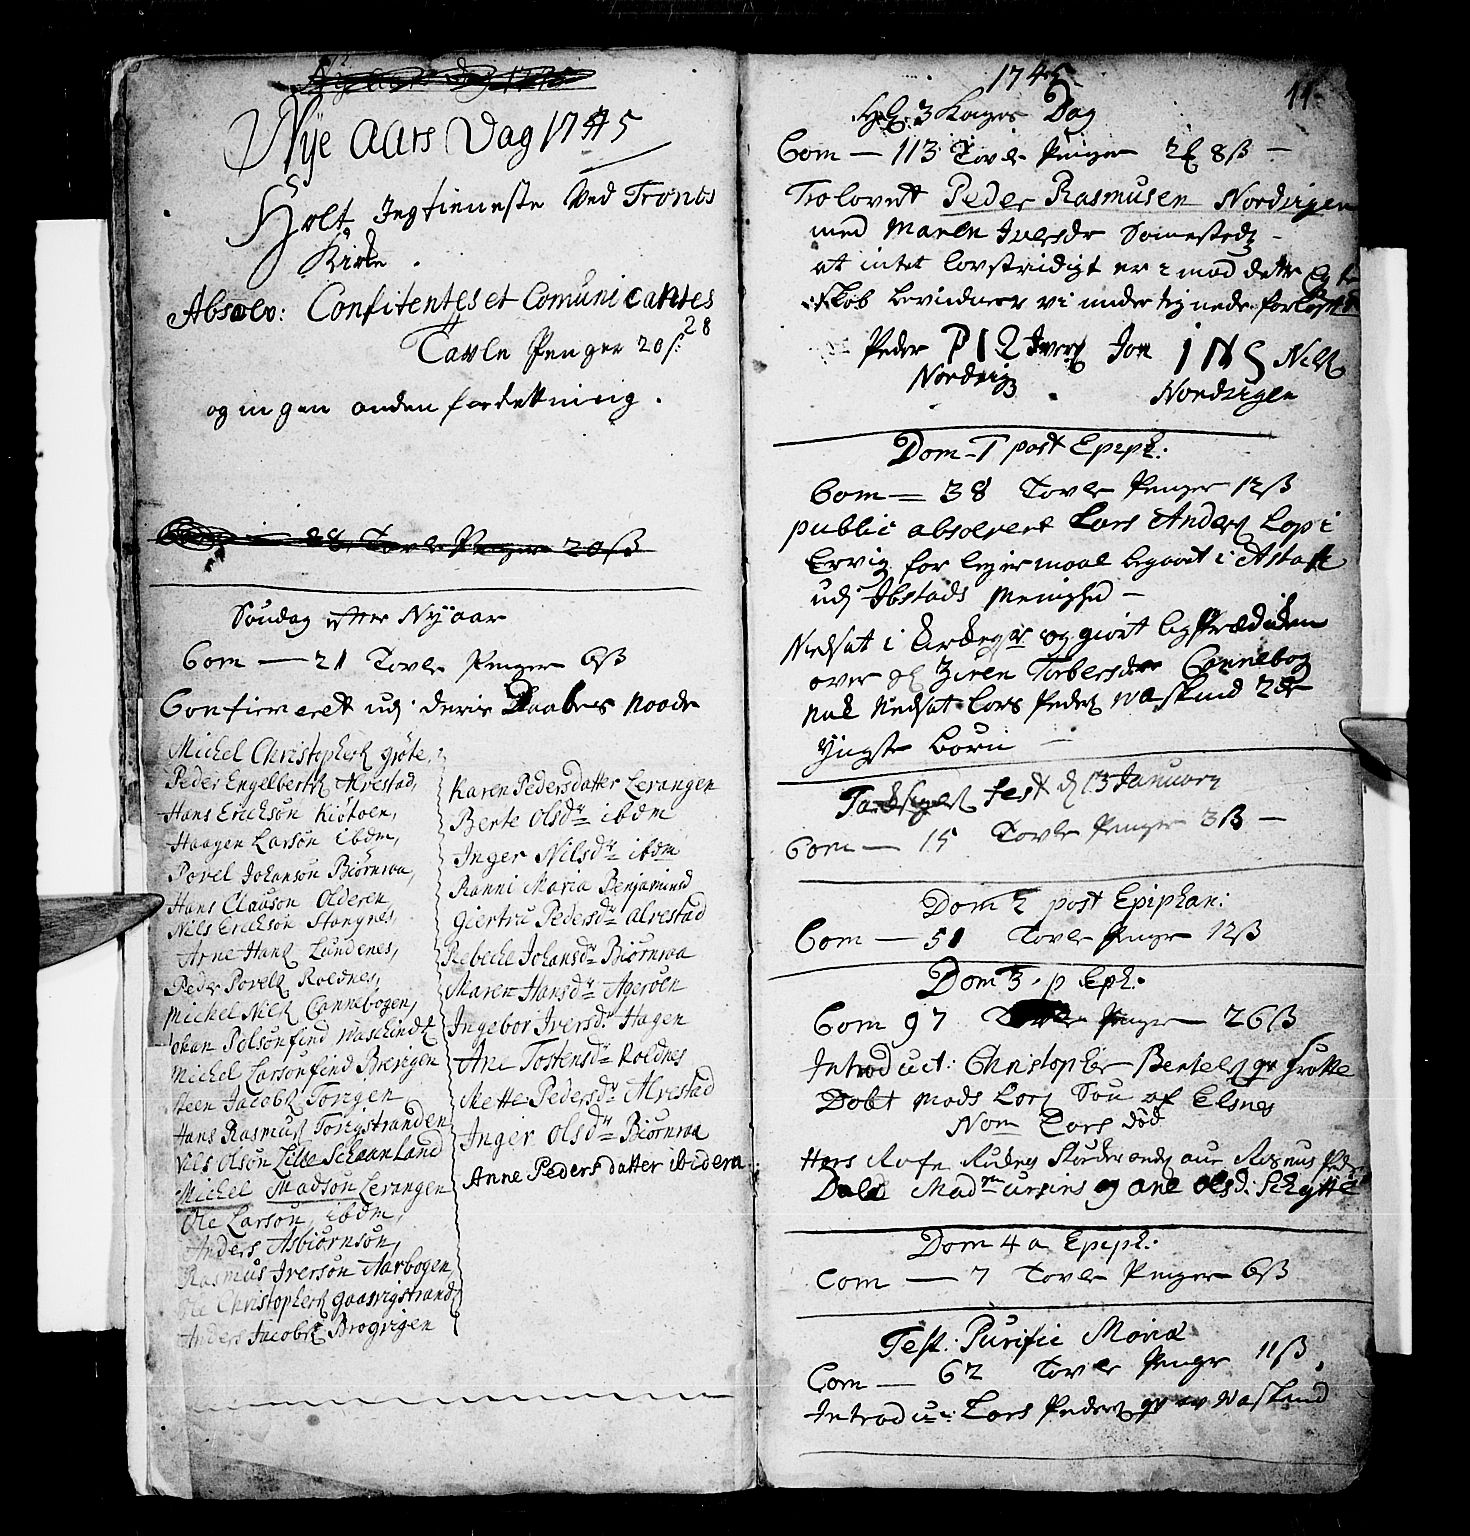 Nye Aars Dag 1745
Holt Ingtieneste Ved Tronts
Kirke.
Absolv: Confitentes et Comunicantes
28
Tavle Penger 20 ſ:
og ingen anden forretning.
Com — 28 Tavle Penger 20 ß
Søndag efter Nyaar
Com — 21 Tavle Penger 6 ß
Confirmeret udj deris Daabes Naade
Michel Christopherß Grøte,
Peder Engelbertß Alrestad,
Hans Erickson Kiøtoen,
Haagen Larson ibdm,
Povel Johanson Biørnroa,
Hans Clauson Olderen
Nils Erickson Stangnes,
Arne Hanß Lundenes,
Peder Povelß Roldnes,
Michel Nielß Cannebogen,
Johan Polsonfind Waskindt
Michel Larsonfind Brevigen
Steen Jacobß Torigen
Hans Rasmusß Torigstranden
Nils Olson Lille Schaanland
Michel Madson Lerangen
Ole Larson, ibdm,
Anders Asbiørnson,
Rasmus Iverson Aarbogen,
Ole Christopherß Gaasvigstrand
Anders Jacobß Brogvigen
Karen Pedersdatter Lerangen
Berte Olsdr ibdm
Inger Nilsdr ibdm
Ranni Maria Benjaminsd
Giertru Pedersdr Alrestad
Rebeche Johansdr Biørnroa
Maren Hansdr Ageroen
Ingebor Iversdr Hagen
Ane Tostensdr Roldnes
Mette Pedersdr Alrestad
Inger Olsdr Biørnroa
Anne Pedersdatter ibidem
1745
11.
Hel. 3 Konger Dag
Com — 113 Tavle Penger 2 8 ß —
Trolovet Peder Rasmusen Nordvigen
med Maren Iversdr Somestedz —
at intet lovstridigt er imod dette Egte
skab bevidner vi undertegnede forlovere
Peder P I Iverß Jon I N S Nilß
Nordvig Nordvigen
Dom 1 post Epiph:
Com — 38 Tavle Penger 12 ß
public absolvert Lars Anderß Lopi
Ervig for leiermaal begaaet i Astafl
udj Ibestads Menighed —
Nedsat i og giort ligPrædiken
over Ziren Torbersdr Cannebog
nok Nedsat Lars Pederß Waskind 2de
Yngste Børn —
Fest d 13 January
Com — 15 Tavle Penger 3 ß —
Dom 2 post Epiphan:
Com — 51 Tavle Penger 12 ß
Dom 3. p Eph.
Com 97 Tavle Penger 26 ß
Introduct: Christopher Bertelß qv Grøtte
Døbt Mads Larß Søn af Elsnes
Nom Lars død
Dom 4 a Epiph:
Com — 7 Tavle Penger 6 ß
Fest. Purific Mariæ
Com — 62 Tavle Penger 11 ß.
Introduc: Lars Pederß qv av Waskind